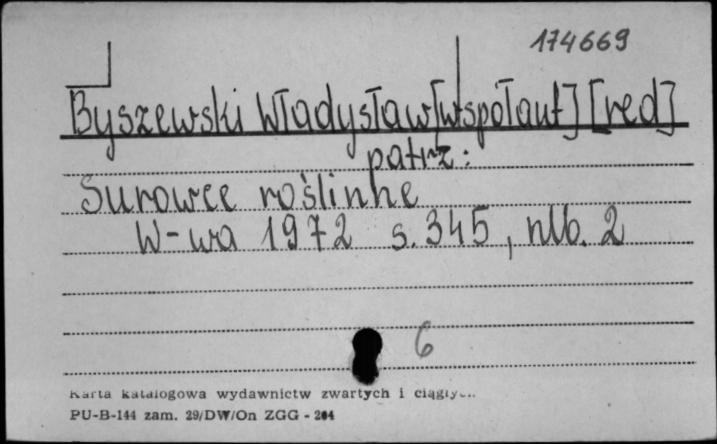 174669
Byszewski Władysław [współaut] [red]
patrz:
Surowce roślinne
W-wa 1972 s. 345, nlb. 2
6
Karta katalogowa wydawnictw zwartych i ciągłych
PU-B-144 zam. 29/DW/On ZGG - 204